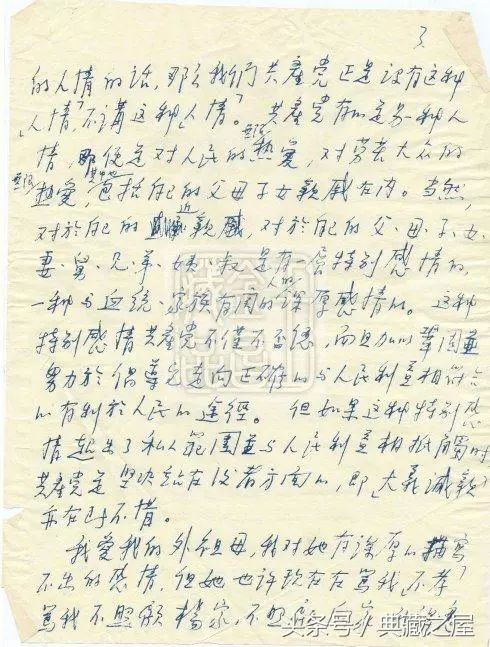 3
的人情的话，那么我們共產党正是没有这种
「人情」，不讲这种「人情」。共產党有的是另一种人
情，那便是对人民的无限热爱，对劳苦大众的
无限热爱，其中也包括自己的父母子女親戚在内。当然，
对於自己的近親戚，对於自己的父、母、子、女、
妻、舅、兄、弟、姨、叔是有一层特别感情的，
一种与血統、家族有関的人的深厚感情的。这种
特别感情共產党不僅不否認，而且加以鞏固並
努力於倡導它走向正确的与人民利益相符合
的有利於人民的途徑。但如果这种特别感
情超出了私人範围並与人民利益相抵触时
共產党是坚决站在后者方面的，即「大義滅親」
亦在所不惜。
我爱我的外祖母，我对她有深厚的描寫
不出的感情，但她也许现在在罵我「不孝」
罵我不照顾楊家，不照顾向家
头条号 / 典藏之屋